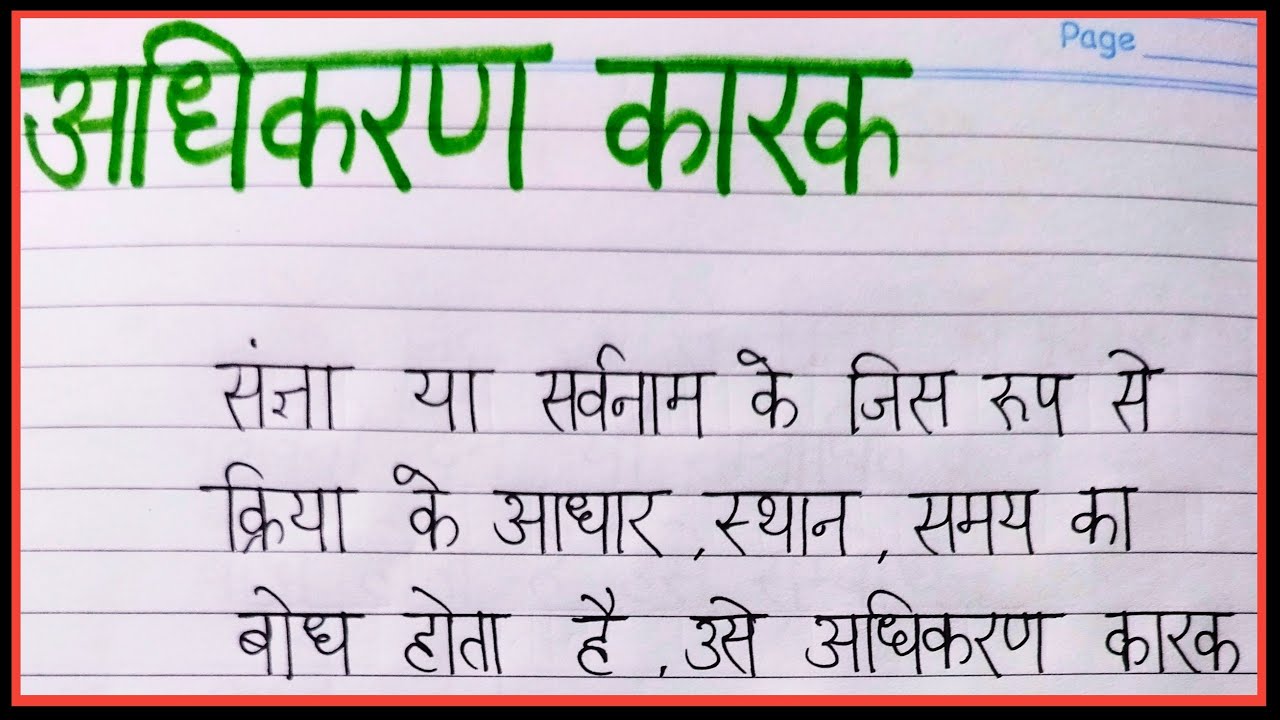 Page
अधिकरण कारक
संज्ञा या सर्वनाम के जिस रूप से
क्रिया के आधार ,स्थान , समय का
बोध होता है ,उसे अधिकरण कारक